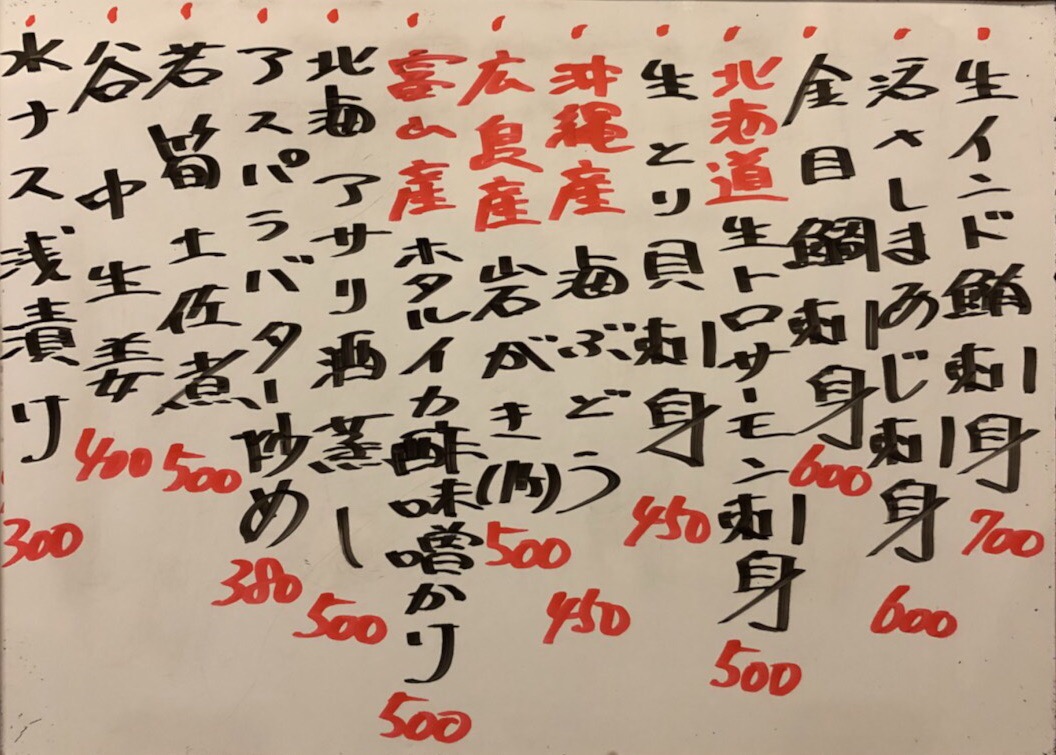 生インド鮪刺身 700
活さしまあじ刺身 600
金目鯛刺身 600
北海道生トロサーモン刺身 500
生とり貝刺身 450
沖縄産海ぶどう 450
広島産岩がき(1ケ) 500
富山産ホタルイカ酢味噌かり 500
北海アサリ酒蒸し 500
アスパラバター炒め 380
若筍土佐煮 500
谷中生姜 400
水ナス浅漬け 300